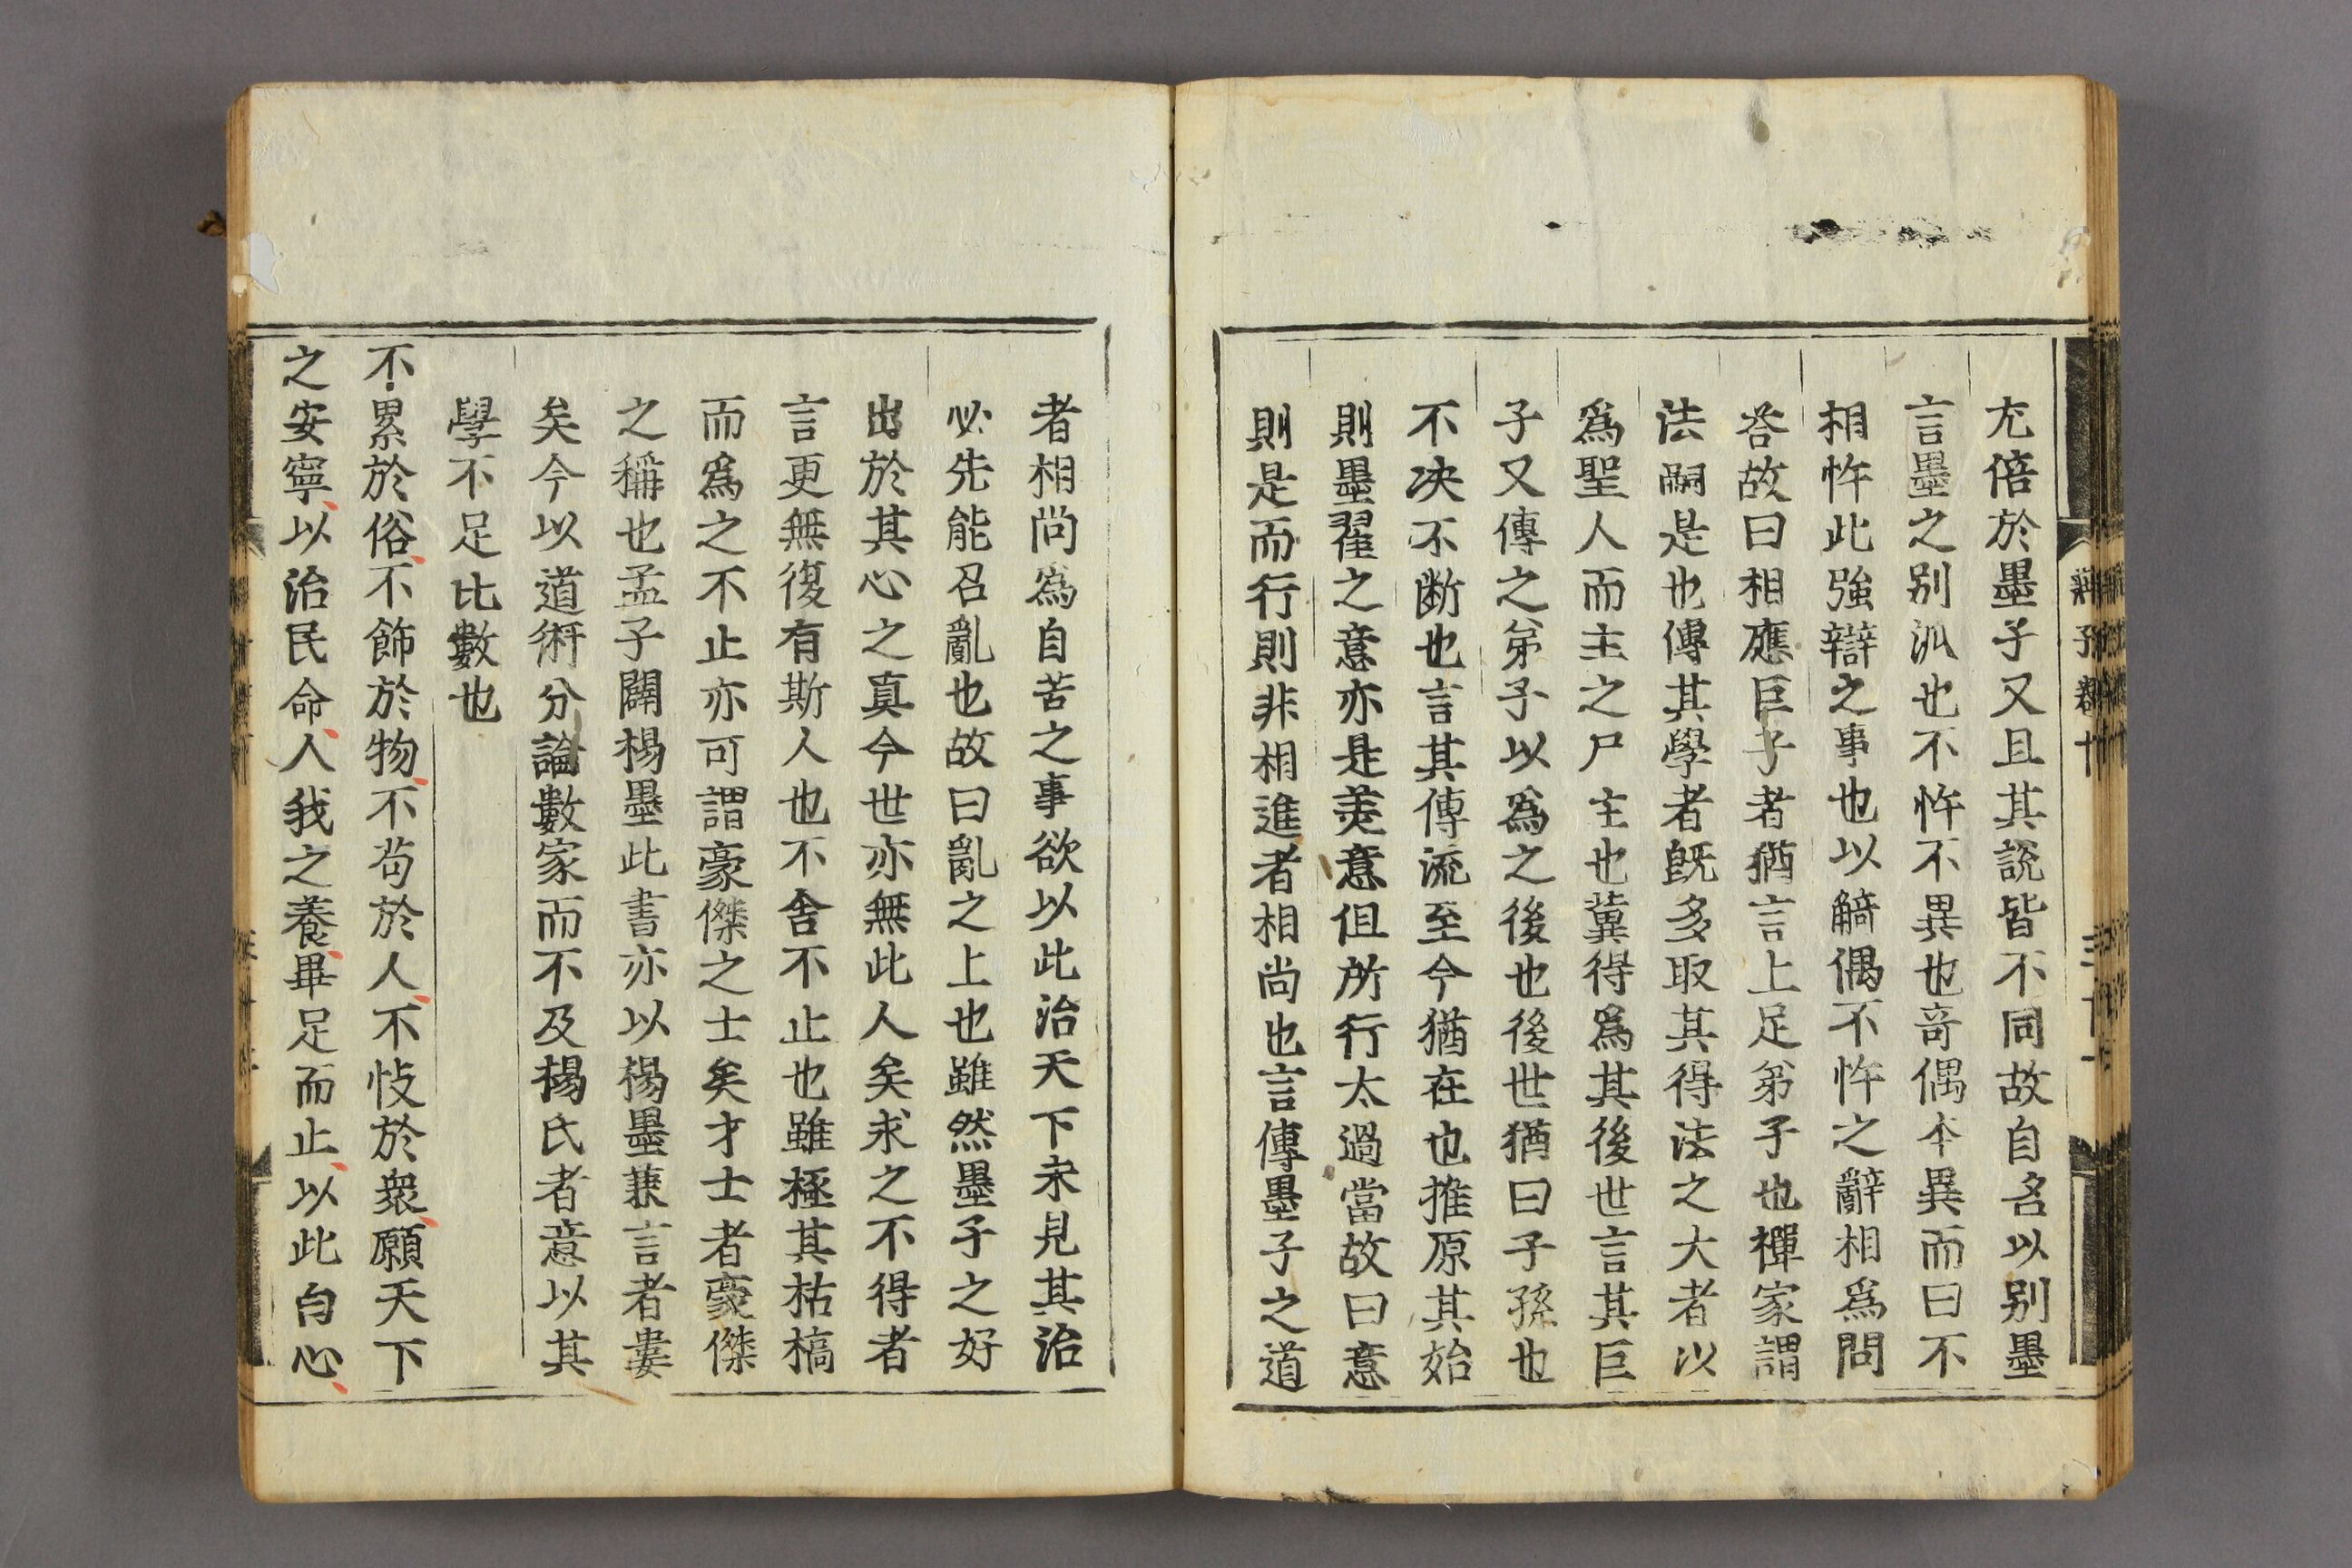 莊子卷十
尤倍於墨子又且其說皆不同故自名以别墨
言墨之别派也不忤不異也竒偶本異而曰不
相忤此強辯之事也以觭偶不忤之辭相爲問
荅故曰相應巨子者猶言上足弟子也禪家謂
法嗣是也傳其學者旣多取其得法之大者以
爲聖人而主之尸主也冀得爲其後世言其巨
子又傳之弟子以爲之後也後世猶曰子孫也
不决不断也言其傳流至今猶在也推原其始
則墨翟之意亦是美意但所行太過當故曰意
則是而行則非相進者相尚也言傳墨子之道
者相尚爲自苦之事欲以此治天下未見其治
必先能召亂也故曰亂之上也雖然墨子之好
出於其心之真今世亦無此人矣求之不得者
言更無復有斯人也不舍不止也雖極其枯槁
而爲之不止亦可謂豪傑之士矣才士者豪傑
之稱也孟子闢楊墨此書亦以楊墨兼言者婁
矣今以道術分論數家而不及楊氏者意以其
學不足比數也
不累於俗不飾於物不苟於人不忮於衆願天下
之安寧以治民命人我之養畢足而止以此白心